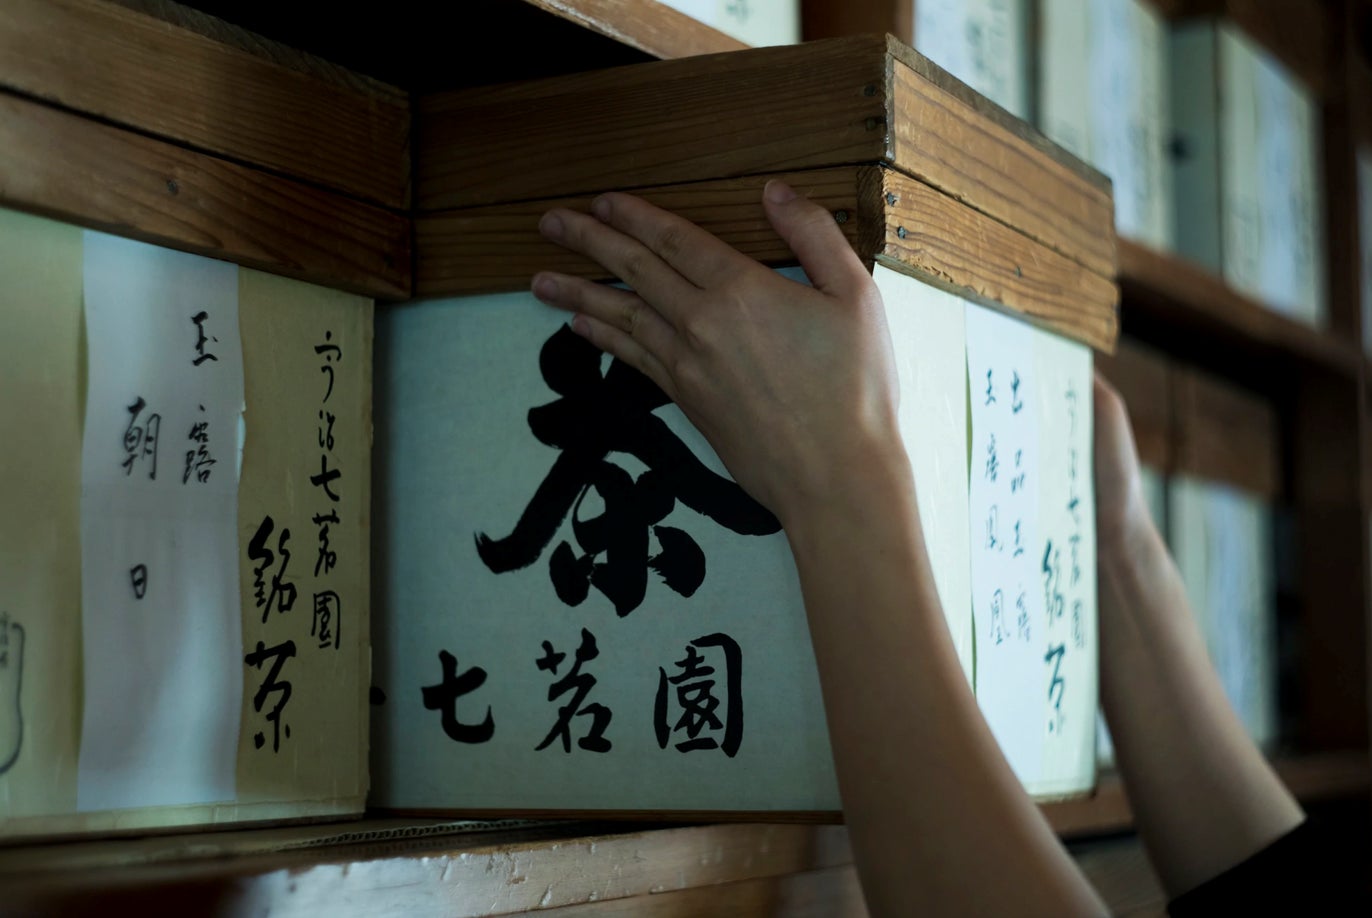 茶
七茗園
宇治七茗園
銘茶
玉露
朝日
宇治七茗園
銘茶
出品玉露
玉露鳳凰